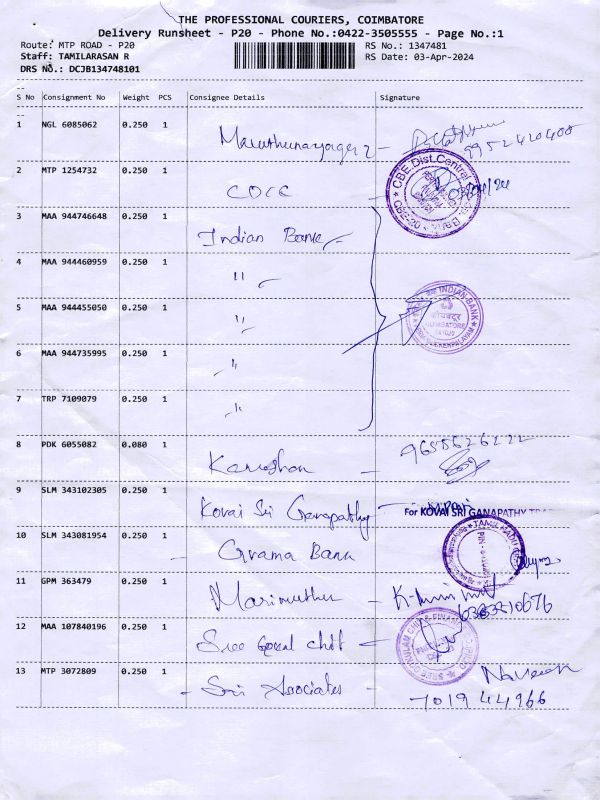 THE PROFESSIONAL COURIERS, COIMBATORE
Delivery Runsheet - P20 - Phone No.:0422-3505555 - Page No.:1
Route: MTP ROAD - P20 RS No.: 1347481
Staff: TAMILARASAN R RS Date: 03-Apr-2024
DRS No.: DCJB134748101
S No Consignment No Weight PCS Consignee Details Signature
1 NGL 6085062 0.250 1
9952420400
2 MTP 1254732 0.250 1
CBE.Dist.Central
3 MAA 944746648 0.250 1 Indian Bank
4 MAA 944460959 0.250 1 "
INDIAN BANK
5 MAA 944455050 0.250 1 "
कोयंबटूर
COIMBATORE
6 MAA 944735995 0.250 1 "
7 TRP 7109079 0.250 1 "
8 PDK 6055082 0.080 1 9655626222
9 SLM 343102305 0.250 1 Kovai Sri Ganapathy For KOVAI SRI GANAPATHY
10 SLM 343081954 0.250 1 Grama Bank TAMIL NADU
11 GPM 363479 0.250 1 Marimuthu
12 MAA 107840196 0.250 1 Sree Gokul chit
13 MTP 3072809 0.250 1 Sri Associates Naveen
7019 44966